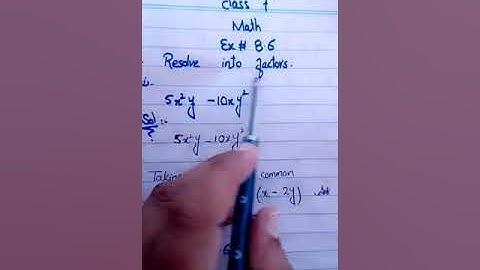 Class 7
Math
Ex # 8.6
Resolve into factors.
i.
5x²y - 10xy²
Sol:-
5x²y - 10xy²
Taking common
(x - 2y) Ans